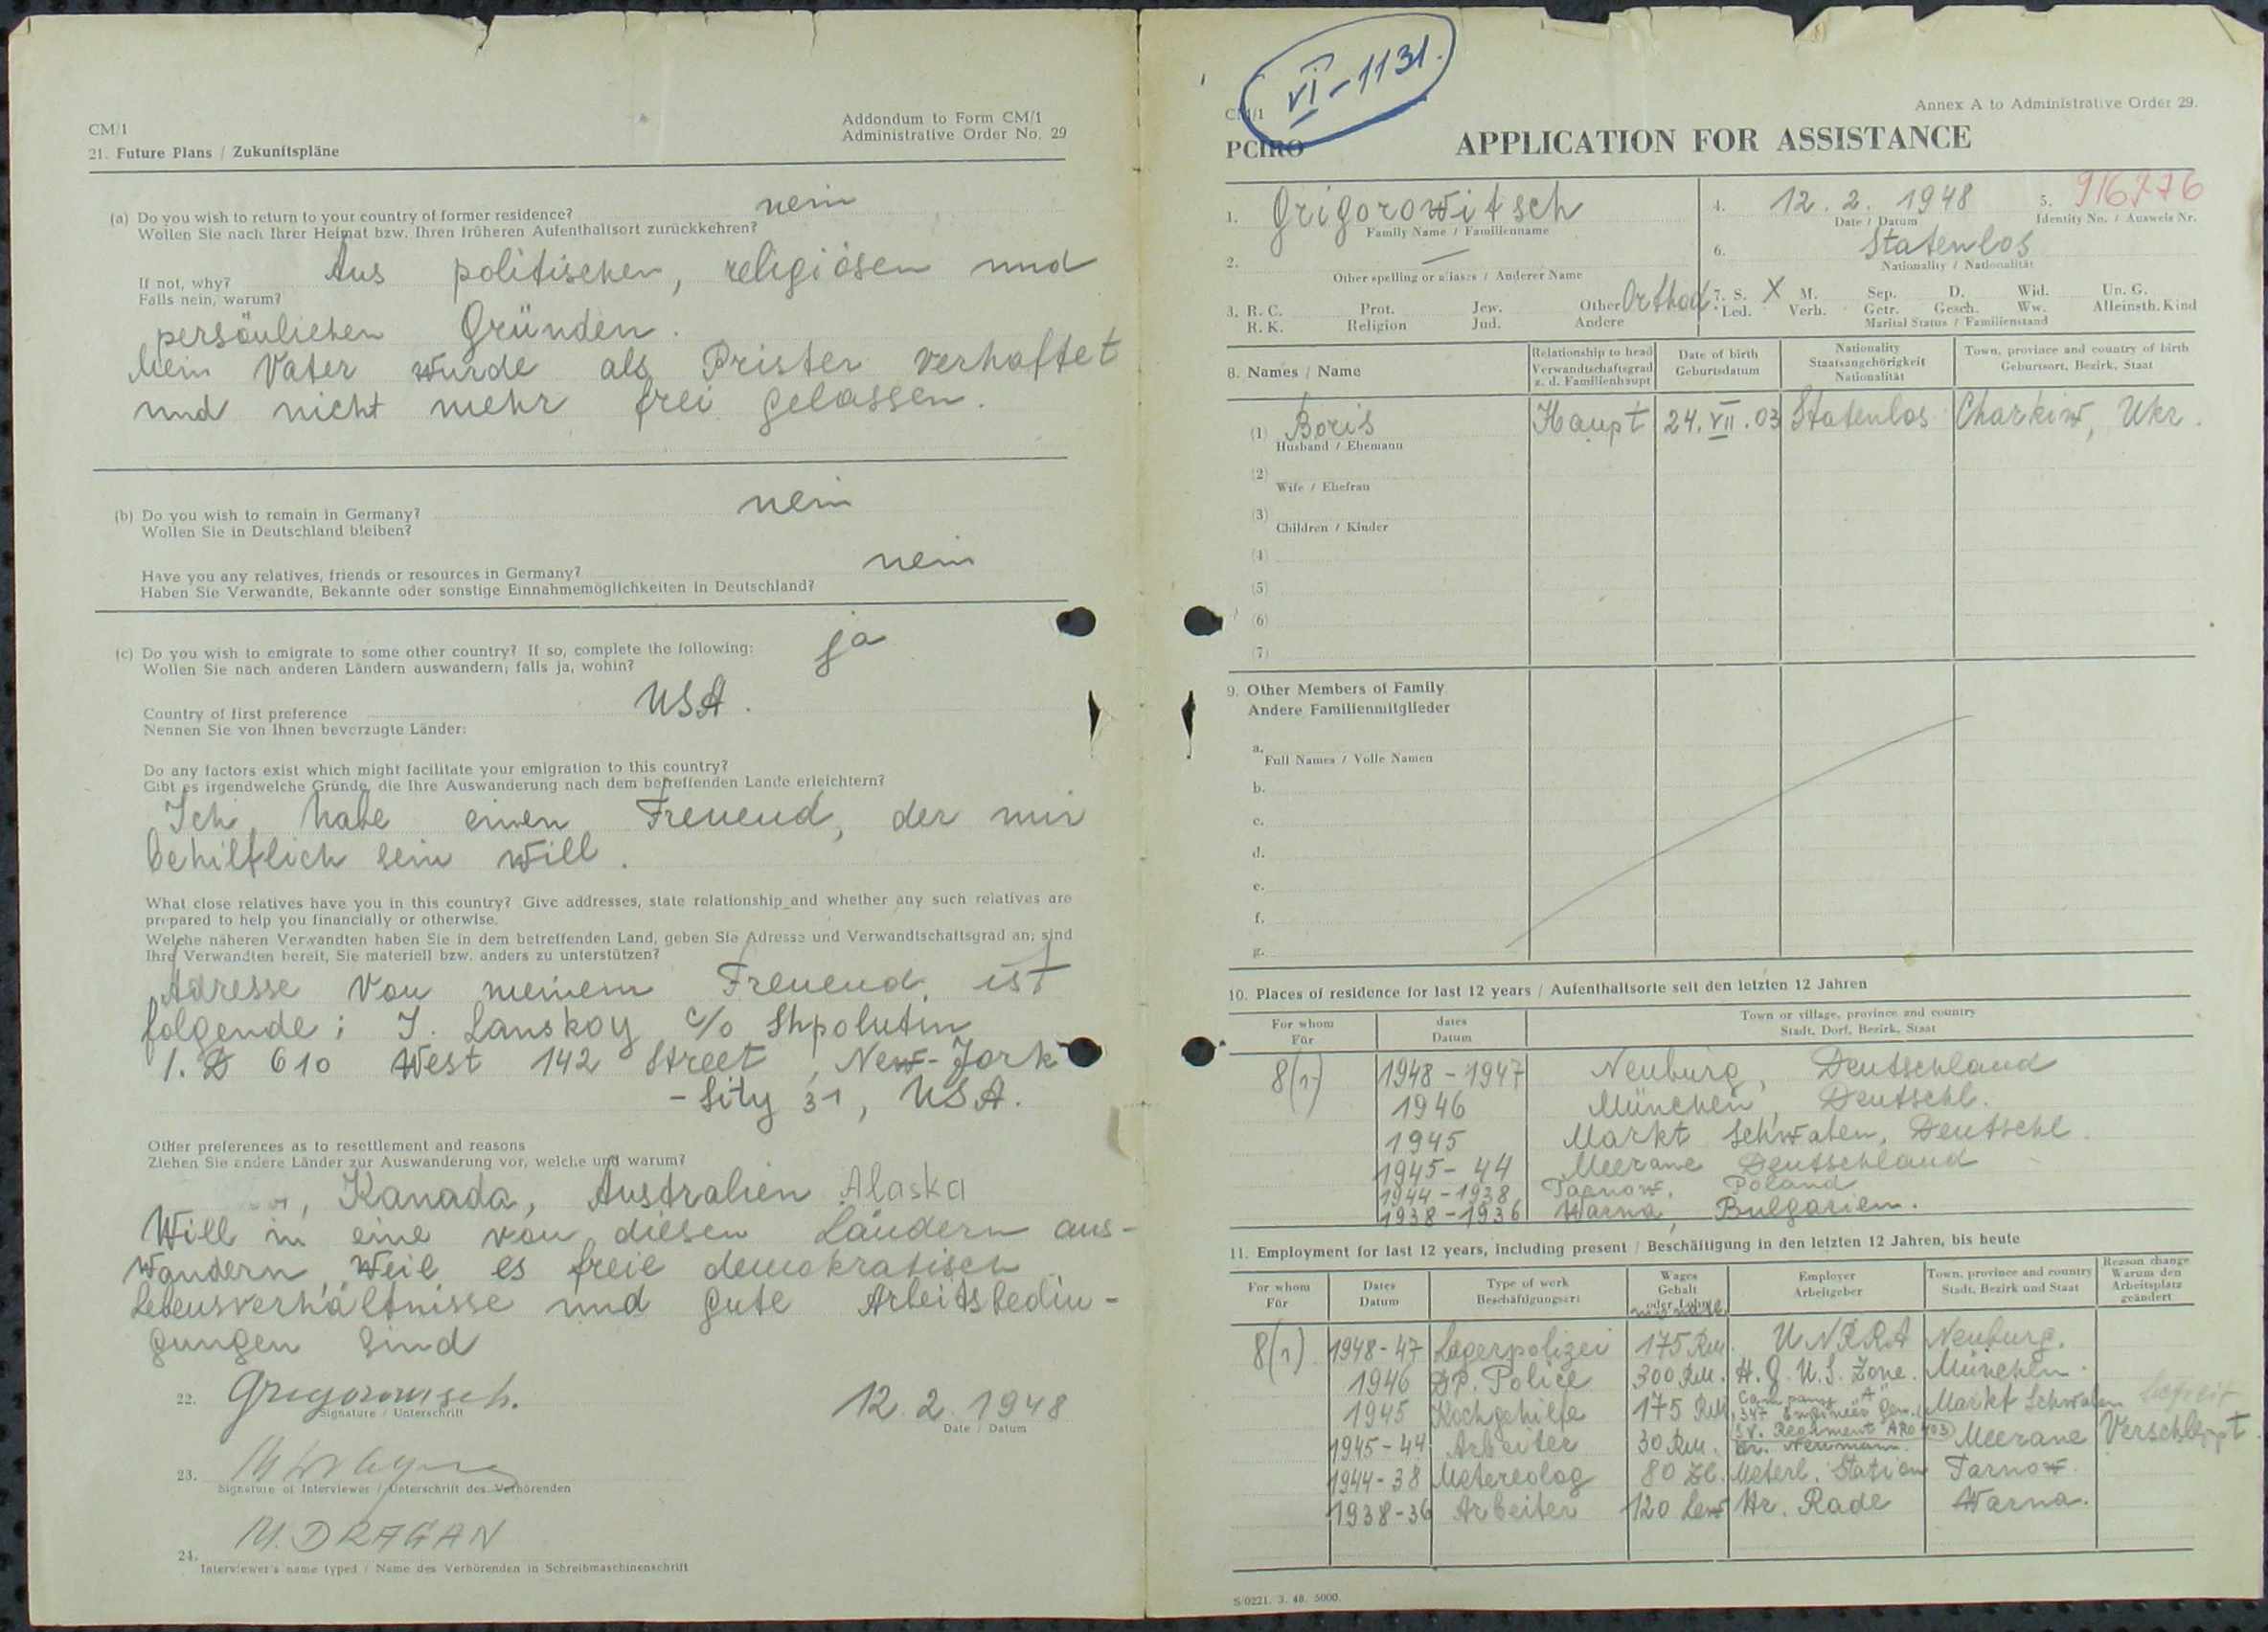 CM/1
Addondum to Form CM/1
Administrative Order No. 29
21. Future Plans / Zukunftspläne
(a) Do you wish to return to your country of former residence? nein
Wollen Sie nach Ihrer Heimat bzw. Ihren früheren Aufenthaltsort zurückkehren?
If not, why? Aus politischen, religiösen und
Falls nein, warum?
persönlichen Gründen.
Mein Vater wurde als Prister verhaftet
und nicht mehr frei gelassen.
(b) Do you wish to remain in Germany? nein
Wollen Sie in Deutschland bleiben?
Have you any relatives, friends or resources in Germany? nein
Haben Sie Verwandte, Bekannte oder sonstige Einnahmemöglichkeiten in Deutschland?
(c) Do you wish to emigrate to some other country? If so, complete the following: ja
Wollen Sie nach anderen Ländern auswandern; falls ja, wohin?
Country of first preference USA.
Nennen Sie von Ihnen bevorzugte Länder:
Do any factors exist which might facilitate your emigration to this country?
Gibt es irgendwelche Gründe, die Ihre Auswanderung nach dem betreffenden Lande erleichtern?
Ich habe einen Freuend, der mir
behilflich sein will.
What close relatives have you in this country? Give addresses, state relationship and whether any such relatives are
prepared to help you financially or otherwise.
Welche näheren Verwandten haben Sie in dem betreffenden Land, geben Sie Adresse und Verwandtschaftsgrad an; sind
Ihre Verwandten bereit, Sie materiell bzw. anders zu unterstützen?
Adresse von meinem Freuend ist
folgende: J. Lanskoy c/o Shpolutin
1. D 610 West 142 Street, New-Jork
-Sity 31, USA.
Other preferences as to resettlement and reasons
Ziehen Sie andere Länder zur Auswanderung vor, welche und warum?
, Kanada, Australien Alaska
Will in eine von diesen Ländern aus-
wandern, weil es freie demokratisch
Lebensverhältnisse und gute Arbeitsbedin-
gungen sind
22. Grigorowitsch. 12.2.1948
Signature / Unterschrift
Date / Datum
23.
Signature of Interviewer / Unterschrift des Verhörenden
M. DRAGAN
24.
Interviewer's name typed / Name des Verhörenden in Schreibmaschinenschrift
VI-1131.
CM/1
Annex A to Administrative Order 29.
PCIRO
APPLICATION FOR ASSISTANCE
1. Grigorowitsch
Family Name / Familienname
4. 12.2.1948
Date / Datum
5. 916776
Identity No. / Ausweis Nr.
2. —
Other spelling or aliases / Anderer Name
6. Statenlos
Nationality / Nationalität
3. R. C. Prot. Jew. Other Orthod.
R. K. Religion Jud. Andere
7. S. X M. Sep. D. Wid. Un. G.
Led. Verh. Getr. Gesch. Ww. Alleinsth. Kind
Marital Status / Familienstand
8. Names / Name
Relationship to head
Verwandtschaftsgrad
z. d. Familienhaupt
Date of birth
Geburtsdatum
Nationality
Staatsangehörigkeit
Nationalität
Town, province and country of birth
Geburtsort, Bezirk, Staat
(1) Boris Haupt 24.VII.03 Statenlos Charkiw, Ukr.
Husband / Ehemann
(2)
Wife / Ehefrau
(3)
Children / Kinder
(4)
(5)
(6)
(7)
9. Other Members of Family
Andere Familienmitglieder
a.
Full Names / Volle Namen
b.
c.
d.
e.
f.
g.
10. Places of residence for last 12 years / Aufenthaltsorte seit den letzten 12 Jahren
For whom
Für
dates
Datum
Town or village, province and country
Stadt, Dorf, Bezirk, Staat
8(1) 1948-1947 Neuburg, Deutschland
1946 München, Deutschl.
1945 Markt Schwaben, Deutschl.
1945-44 Meerane Deutschland
1944-1938 Tarnow, Poland
1938-1936 Warna, Bulgarien.
11. Employment for last 12 years, including present / Beschäftigung in den letzten 12 Jahren, bis heute
For whom
Für
Dates
Datum
Type of work
Beschäftigungsart
Wages
Gehalt
oder Lohn
Employer
Arbeitgeber
Town, province and country
Stadt, Bezirk und Staat
Reason change
Warum den
Arbeitsplatz
geändert
8(1) 1948-47 Lagerpolizei 175 Rm. UNRRA Neuburg.
1946 DP. Police 300 Rm. H.Q. U.S. Zone. München.
1945 Kochgehilfe 175 Rm. Company "A" 347 Engineer Gen. Sv. Regiment ARO 403 Markt Schwaben
1945-44 Arbeiter 30 Rm. Hr. Neumann. Meerane Verschleppt
1944-38 Metereolog 80 Zl. Meterl. Station Tarnow.
1938-36 Arbeiter 120 Lew Hr. Rade Warna.
S/0221. 3. 48. 5000.